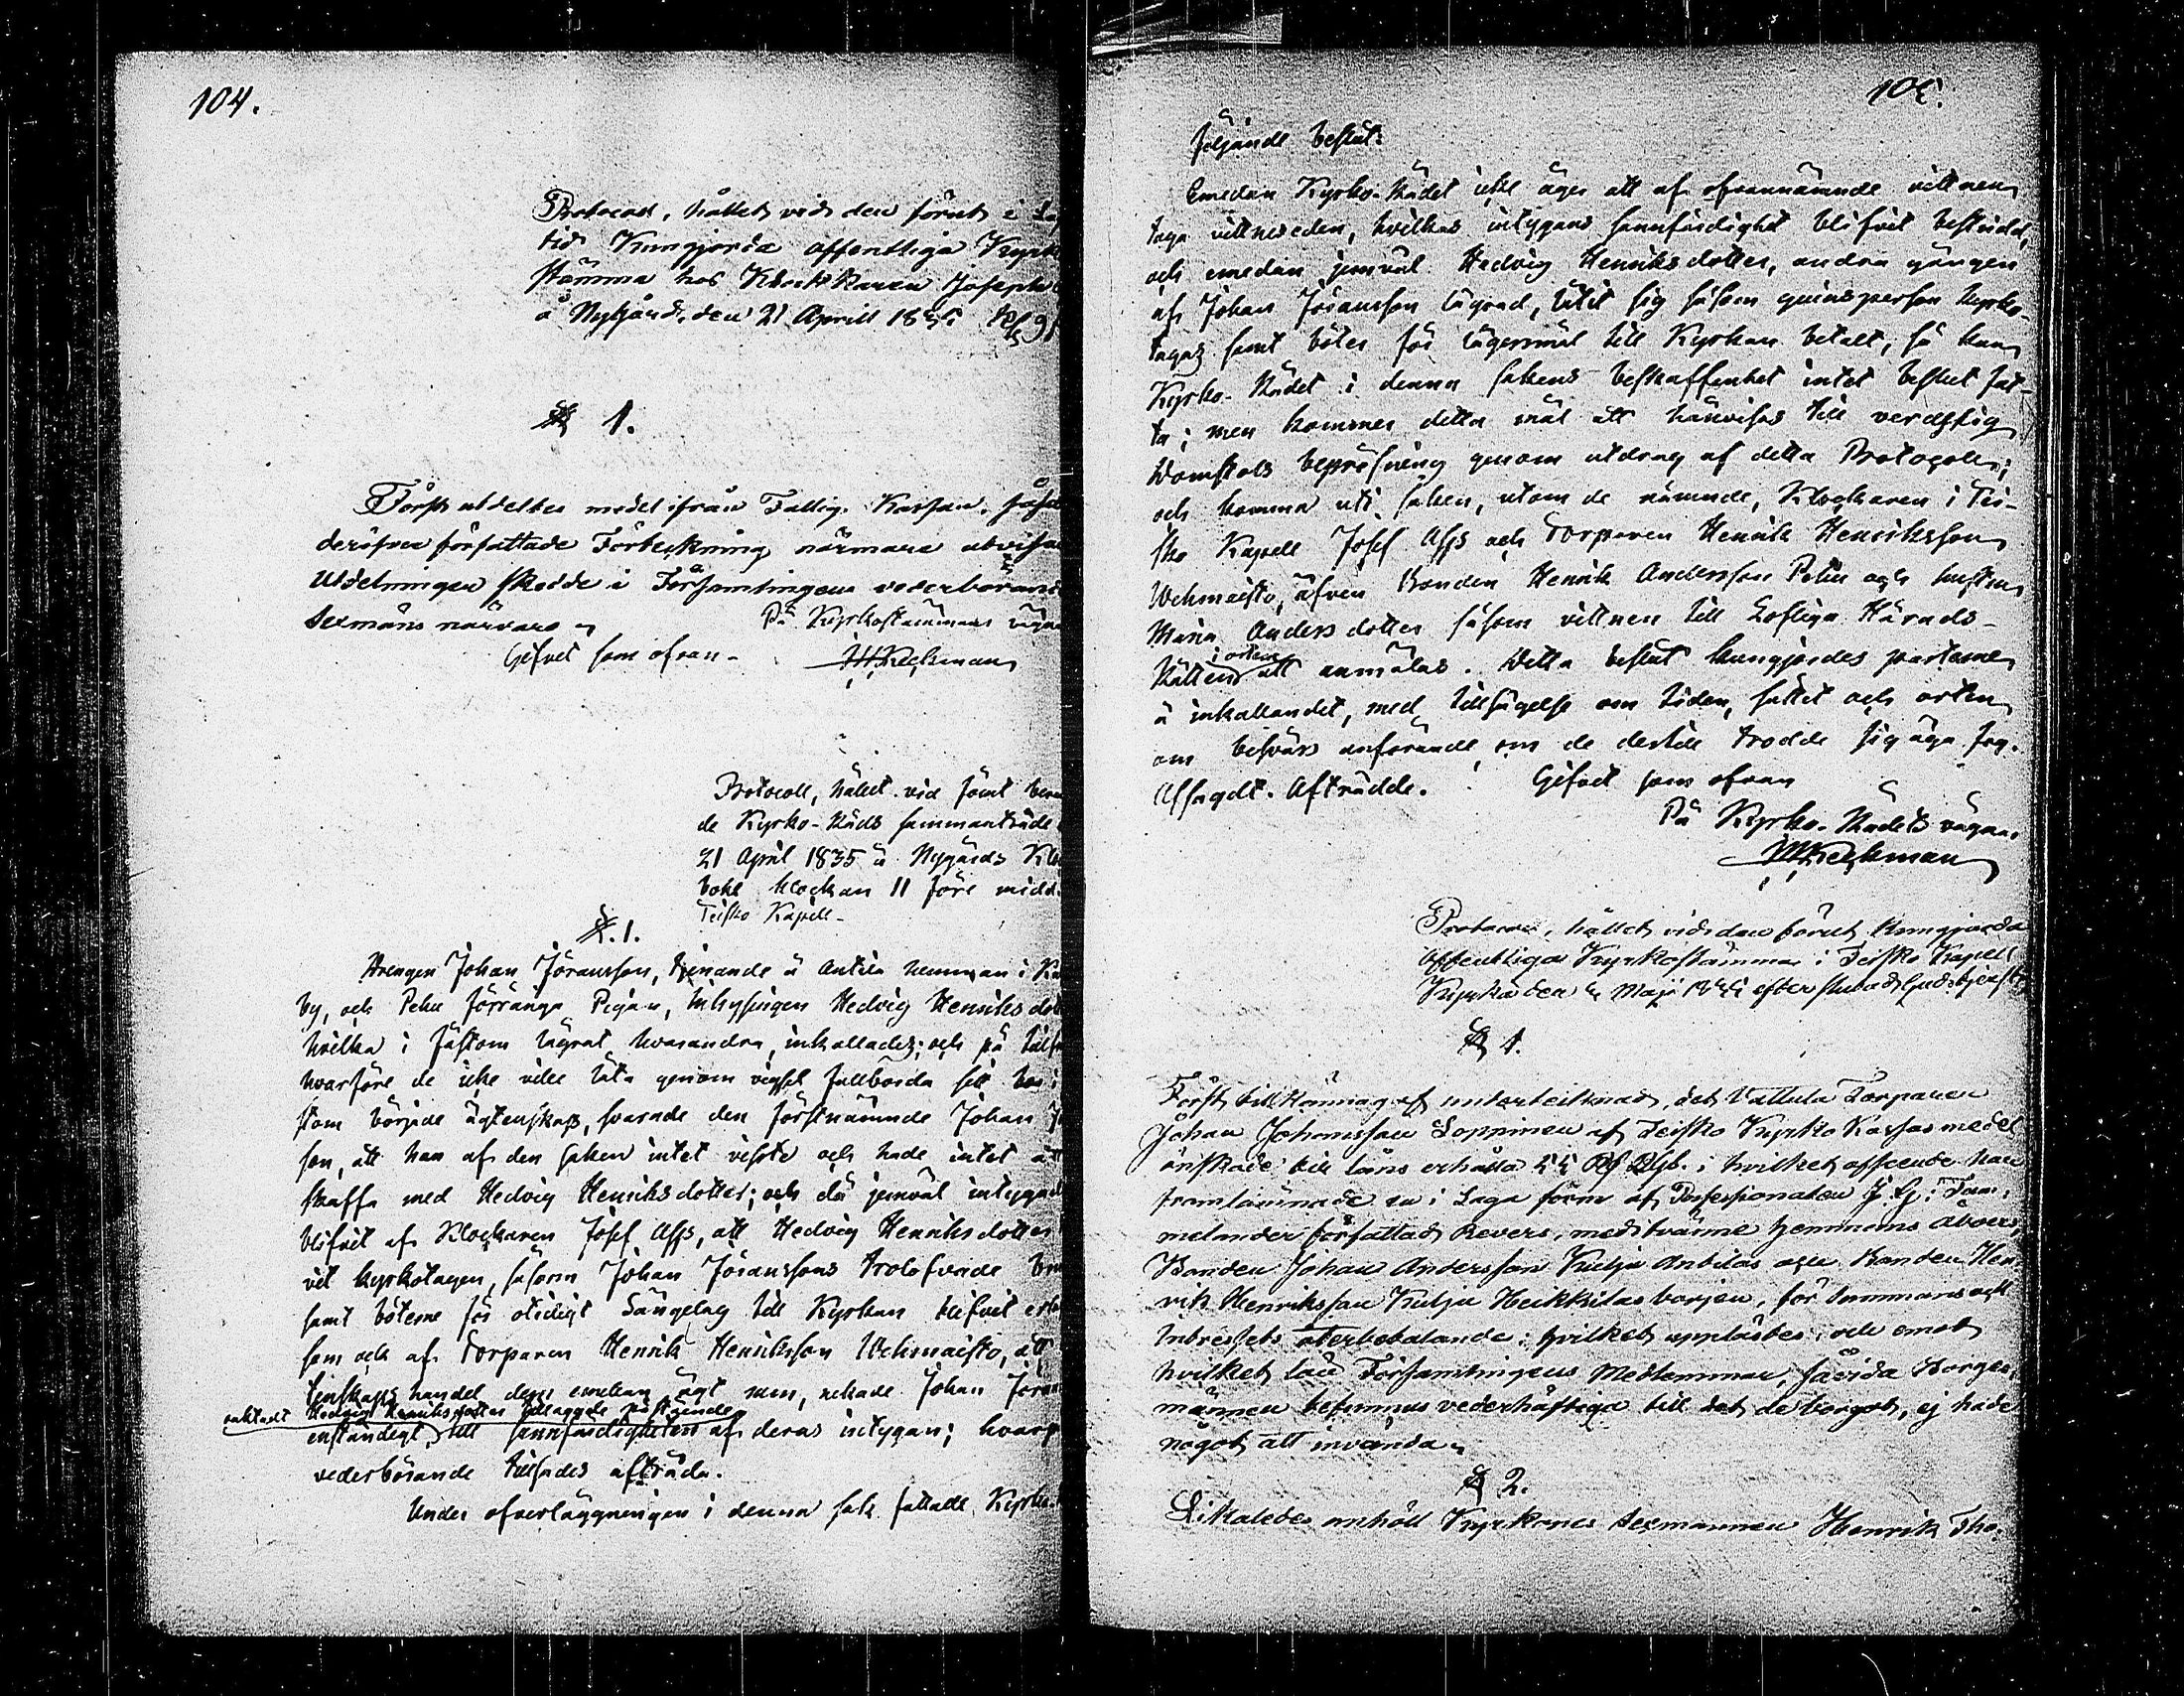 104.
Protocoll, hållet vid den förut i La
tid Kungjorda offentliga Kyrko
stämma hos Klockkaren Joseph
å Nygård, den 21 Aprill 1835.
§ 1.
Först utdeltes medel ifrån Fattig. Kassan, såsom
deröfver författade Förteckning närmare utvisar
Utdelningen skedde i Församlingens vederböran
Sexmäns närvaro
På Kyrkostämmans vägnar
Gifvet som ofvan.
Protocoll, hållet vid förut beram
de Kyrko-Råds sammanträde
21 April 1835 å Nygårds Klo
bohl klockan 11 före midd.
Teisko Kapell.
§. 1.
Drengen Johan Jöransson, tjenande å Antila hemman i Ku
by, och Pehu förränga Pigan, Inhysingen Hedvig Henriksdot
hvilka i fästom lägrat hvarandra, inkallades; och på tillfr
hvarföre de icke vilja låta genom vigsel fullborda sitt
stom började ägtenskap, svarade den förstnämnde Johan Jö
son, att han af den saken intet visste och hade intet att
skaffa med Hedvig Henriksdotter; och då jemväl intygad
blifvit af Klockaren Josef Alfs, att Hedvig Henriksdotter
vit kyrkotagen, såsom Johan Jöranssons trolofvade
samt böterne för otidigt Sängelag till Kyrkan blifvit erl
som och af Torparen Henrik Henriksson Wehmaisto, att
handel dem emellan ägt rum, nekade Johan Jöran
oaktadt Hedvig Henriksdotters påstående
enständigt, till sannfärdigheten af deras intygan; hvarp
vederbörande tillsades afträda.
Under öfverläggningen i denna sak fattade Kyrko
105.
följande beslut:
Emedan Kyrko-Rådet icke äger att af ofvannämnde vittnen
taga vittneseden, hvilkas intygans sannfärdighet blifvit bestridd,
och emedan jemväl Hedvig Henriksdotter, andra gången
af Johan Jöransson lägrad, låtit sig såsom qvinsperson kyrko-
tagas samt böter för lägersmål till Kyrkan betalt, så kan
Kyrko-Rådet i denna sakens beskaffenhet intet beslut fat-
ta; men kommer detta mål att hänvisas till
Domstols bepröfning genom utdrag af detta Protocoll;
och komma uti saken, utom de nämnde, Klockaren i Tei-
sko Kapell Josef Alfs och Torparen Henrik Henriksson
Wehmaisto, äfven Bonden Henrik Andersson Pehu och hustru
Maria Andersdotter såsom vittnen till Lofliga Härads-
Rätten i orten att anmälas. Detta beslut kungjordes parterne
å inkallandet, med tillsägelse om tiden, sättet och orten
om besvärs anförande, om de dertill trodde sig äga fog.
Afsagdt. Afträdde. Gifvet som ofvan
På Kyrko-Rådets vägnar
Protocoll, hållet vid den förut kungjorda
offentliga Kyrkostämma i Teisko Kapell
Kyrka den Maji 1835 efter slutad Gudstjenst
§ 1.
Först tillkännagaf undertecknad, det Vattula Torparen
Johan Johansson Soppinen af Teisko Kyrko Kassas medel
önskade till låns erhålla 55 i hvilket afseende han
framlämnade en i Laga form af Professionalen
melander författad Revers, med tvänne hemmans åboers,
Bonden Johan Andersson Kulju Anttilas och Bonden Hen
rik Henriksson Kulju Heikkilas borjen, för summans och
Intressets återbetalande; hvilket upplästes och emot
hvilket lån Församlingens Medlemmar, såvida Borges
männen befunnos vederhäftiga till det de borgat, ej hade
något att invända.
§ 2.
Likaledes anhöll Kyrkones Sexmannen Henrik Tho-